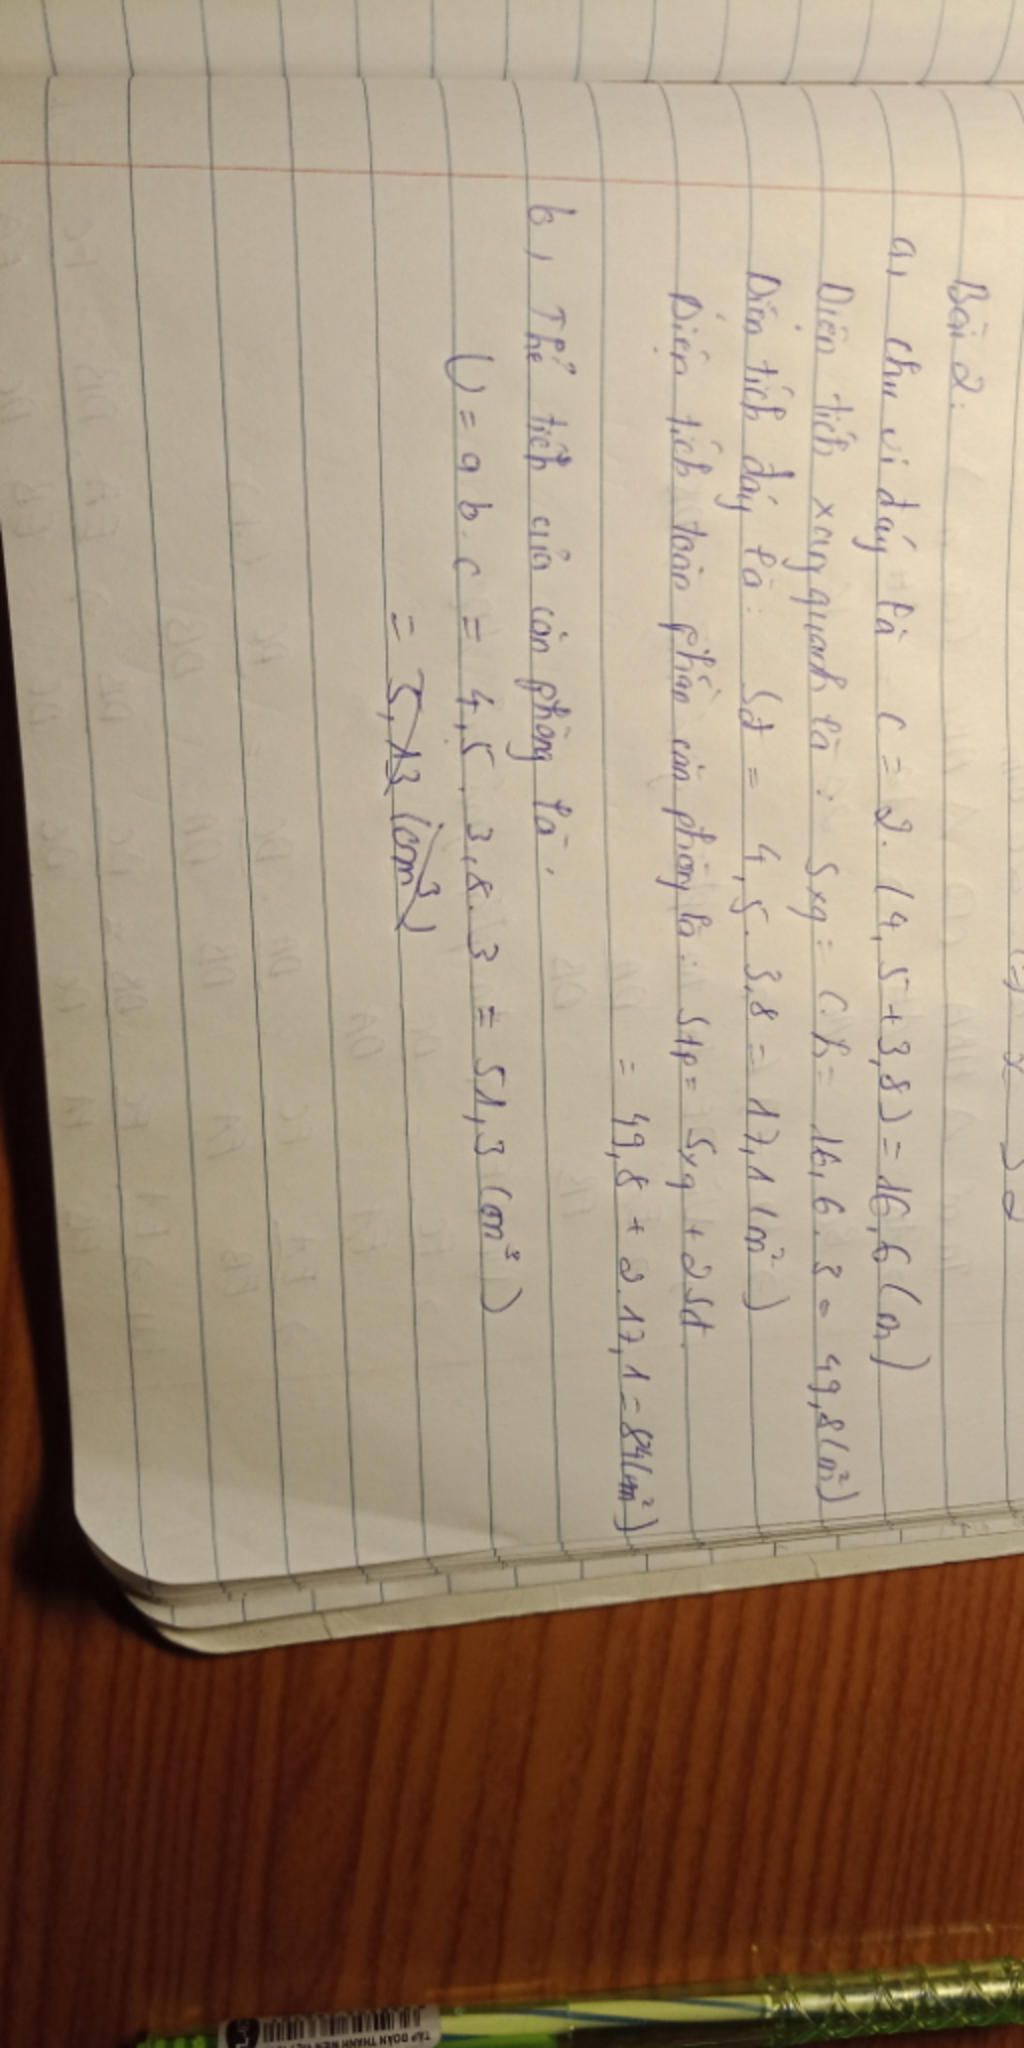 Bài 2:
a, chu vi đáy là C = 2. (4,5 + 3,8) = 16,6 (m)
Diện tích xung quanh là : Sxq = C.h = 16,6. 3 = 49,8 (m²)
Diện tích đáy là: Sđ = 4,5. 3,8 = 17,1 (m²)
Diện tích toàn phần căn phòng là: Stp = Sxq + 2Sđ
= 49,8 + 2.17,1 = 84 (m²)
b, Thể tích của căn phòng là:
V = a b . c = 4,5 . 3,8. 3 = 51,3 (m³)
= 5,13 (cm³)
TẬP ĐOÀN THIÊN